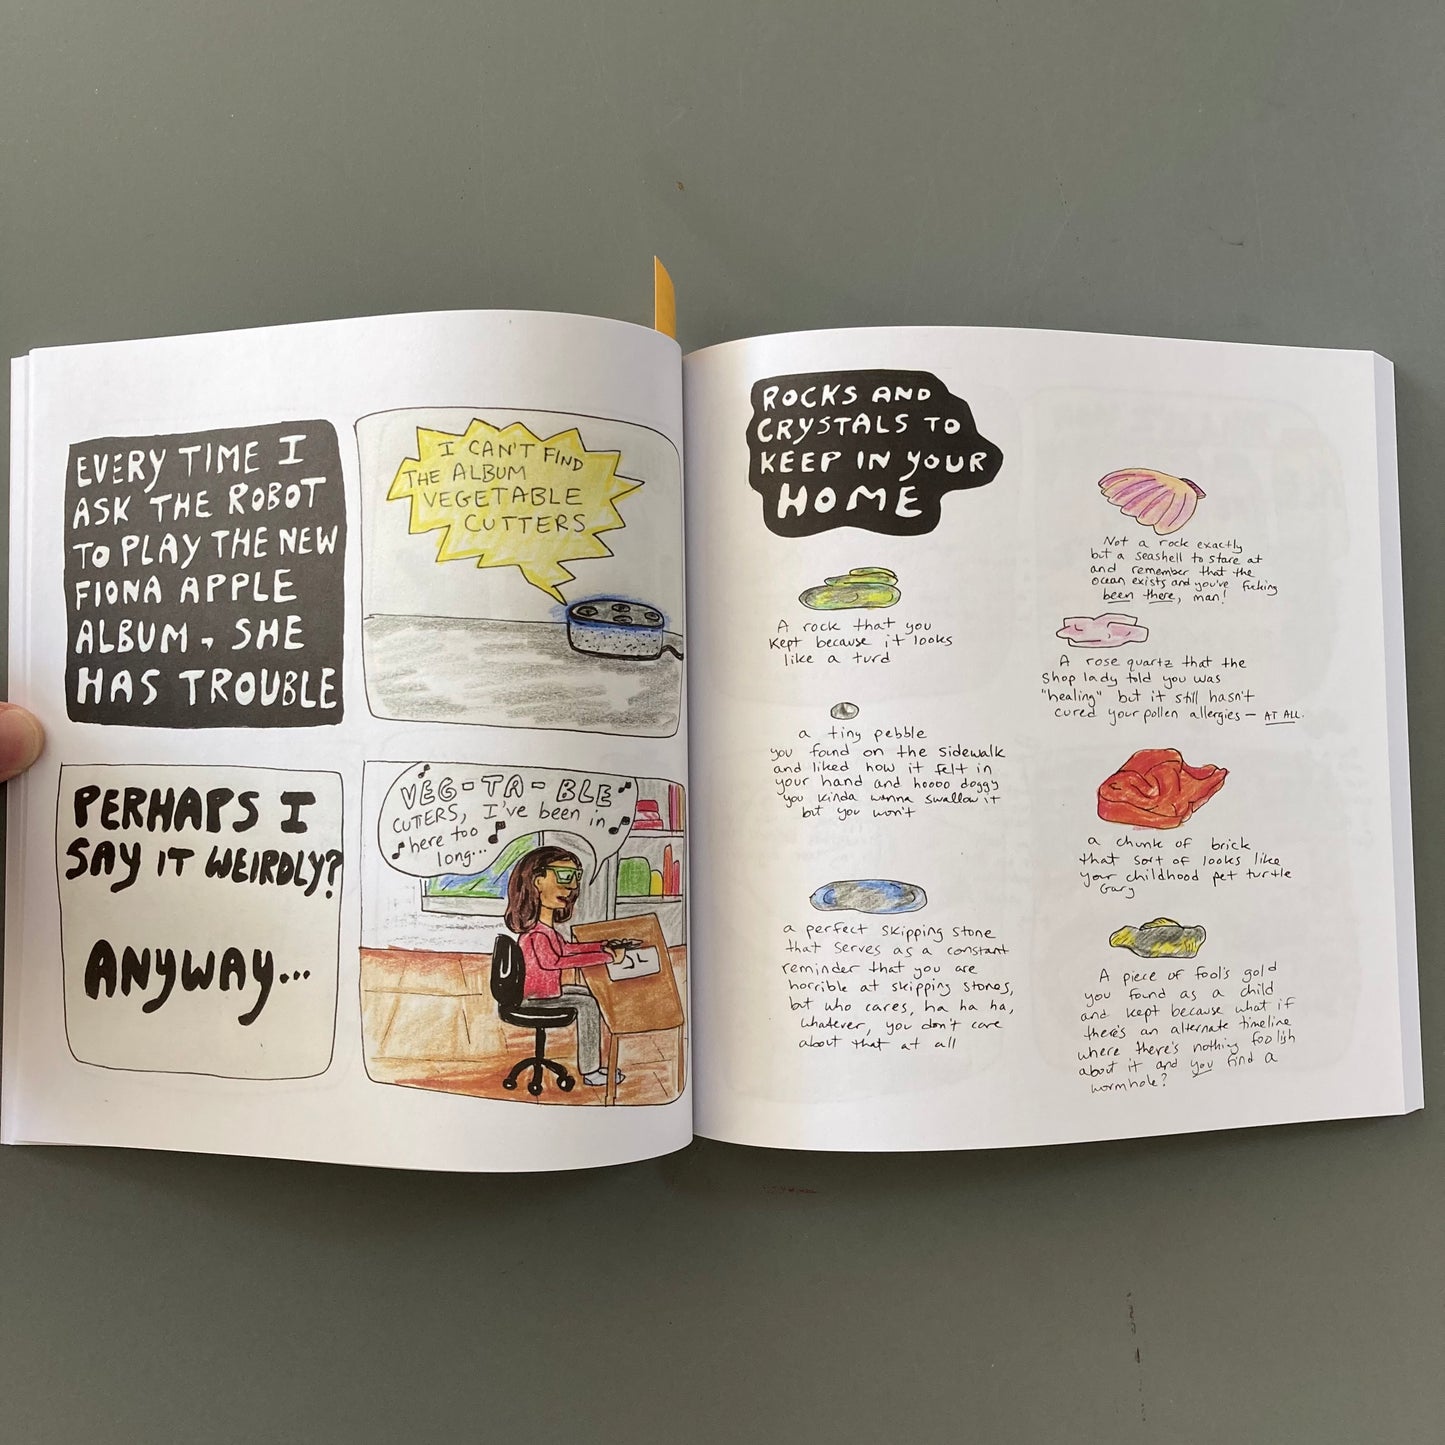 EVERY TIME I
ASK THE ROBOT
TO PLAY THE NEW
FIONA APPLE
ALBUM, SHE
HAS TROUBLE
I CAN'T FIND
THE ALBUM
VEGETABLE
CUTTERS
PERHAPS I
SAY IT WEIRDLY?
ANYWAY...
VEG-TA-BLE
CUTTERS, I'VE been in
here too
long...
ROCKS AND
CRYSTALS TO
KEEP IN YOUR
HOME
A rock that you
kept because it looks
like a turd
a tiny pebble
you found on the sidewalk
and liked how it felt in
your hand and hoooo doggy
you kinda wanna swallow it
but you won't
a perfect skipping stone
that serves as a constant
reminder that you are
horrible at skipping stones,
but who cares, ha ha ha,
whatever, you don't care
about that at all
Not a rock exactly
but a seashell to stare at
and remember that the
ocean exists and you've fucking
been there, man!
A rose quartz that the
shop lady told you was
"healing" but it still hasn't
cured your pollen allergies — AT ALL.
a chunk of brick
that sort of looks like
your childhood pet turtle
Gary
A piece of fool's gold
you found as a child
and kept because what if
there's an alternate timeline
where there's nothing foolish
about it and you find a
wormhole?